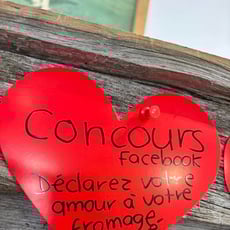 Concours
facebook
Déclarez votre
amour à votre
fromage.